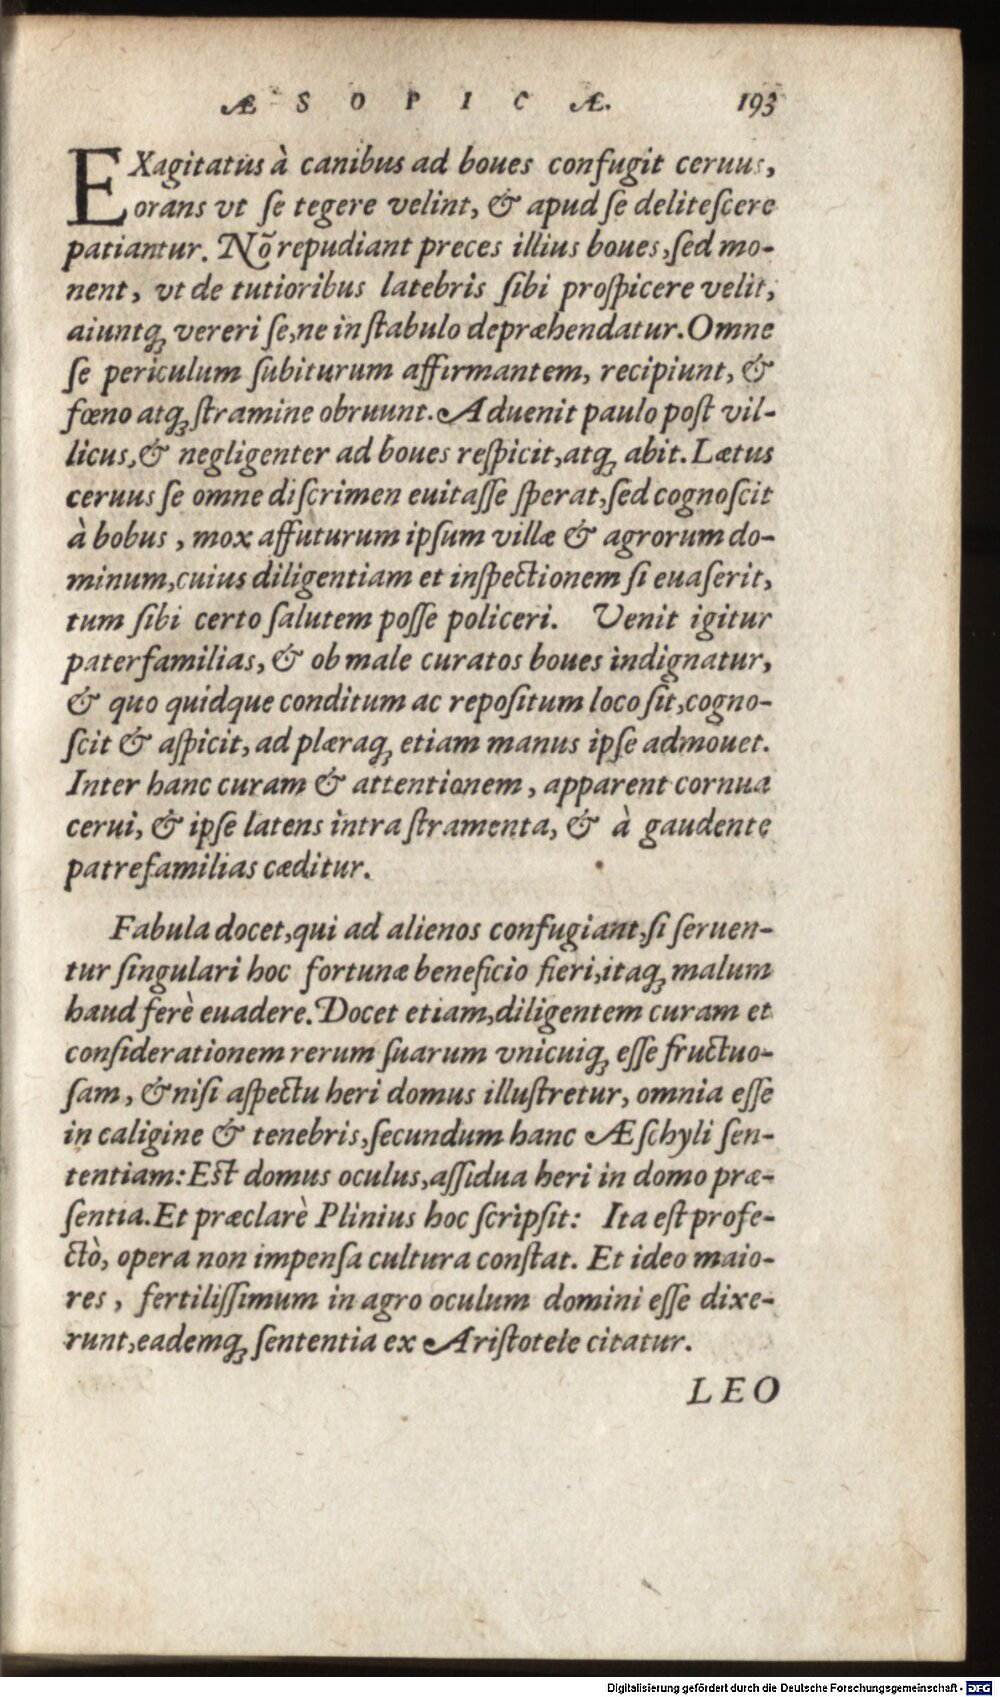 ÆSOPICÆ. 193
EXagitatus à canibus ad boues confugit ceruus,
orans vt ſe tegere velint, & apud ſe deliteſcere
patiantur. Nõ repudiant preces illius boues, ſed mo-
nent, vt de tutioribus latebris ſibi proſpicere velit,
aiuntq; vereri ſe, ne in ſtabulo depræhendatur. Omne
ſe periculum ſubiturum affirmantem, recipiunt, &
fœno atq; ſtramine obruunt. Aduenit paulo poſt vil-
licus, & negligenter ad boues reſpicit, atq; abit. Lætus
ceruus ſe omne diſcrimen euitaſſe ſperat, ſed cognoſcit
à bobus, mox affuturum ipſum villæ & agrorum do-
minum, cuius diligentiam et inſpectionem ſi euaſerit,
tum ſibi certo ſalutem poſſe policeri. Venit igitur
paterfamilias, & ob male curatos boues indignatur,
& quo quidque conditum ac repoſitum loco ſit, cogno-
ſcit & aſpicit, ad plæraq; etiam manus ipſe admouet.
Inter hanc curam & attentionem, apparent cornua
cerui, & ipſe latens intra ſtramenta, & à gaudente
patrefamilias cæditur.
Fabula docet, qui ad alienos confugiant, ſi ſeruen-
tur ſingulari hoc fortunæ beneficio fieri, itaq; malum
haud ferè euadere. Docet etiam, diligentem curam et
conſiderationem rerum ſuarum vnicuiq; eſſe fructuo-
ſam, & niſi aſpectu heri domus illuſtretur, omnia eſſe
in caligine & tenebris, ſecundum hanc Æſchyli ſen-
tentiam: Eſt domus oculus, aſſidua heri in domo præ-
ſentia. Et præclarè Plinius hoc ſcripſit: Ita eſt profe-
ctò, opera non impenſa cultura conſtat. Et ideo maio-
res, fertiliſſimum in agro oculum domini eſſe dixe-
runt, eademq; ſententia ex Ariſtotele citatur.
LEO
Digitalisierung gefördert durch die Deutsche Forschungsgemeinschaft - DFG